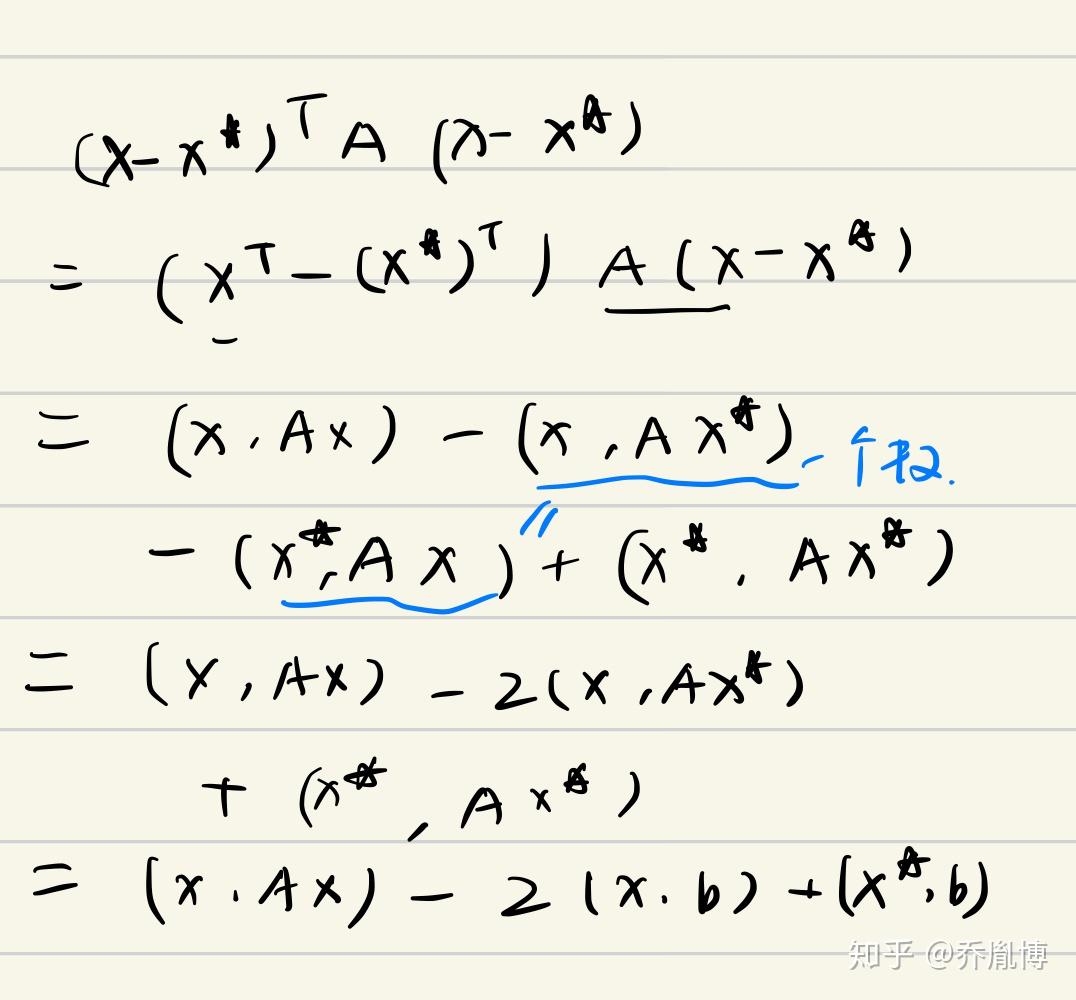 (x - x*)ᵀ A (x - x*)
= (xᵀ - (x*)ᵀ) A (x - x*)
= (x, Ax) - (x, Ax*) 一个数.
- (x*, Ax) + (x*, Ax*)
= (x, Ax) - 2(x, Ax*)
+ (x*, Ax*)
= (x, Ax) - 2(x, b) + (x*, b)
知乎 @乔胤博